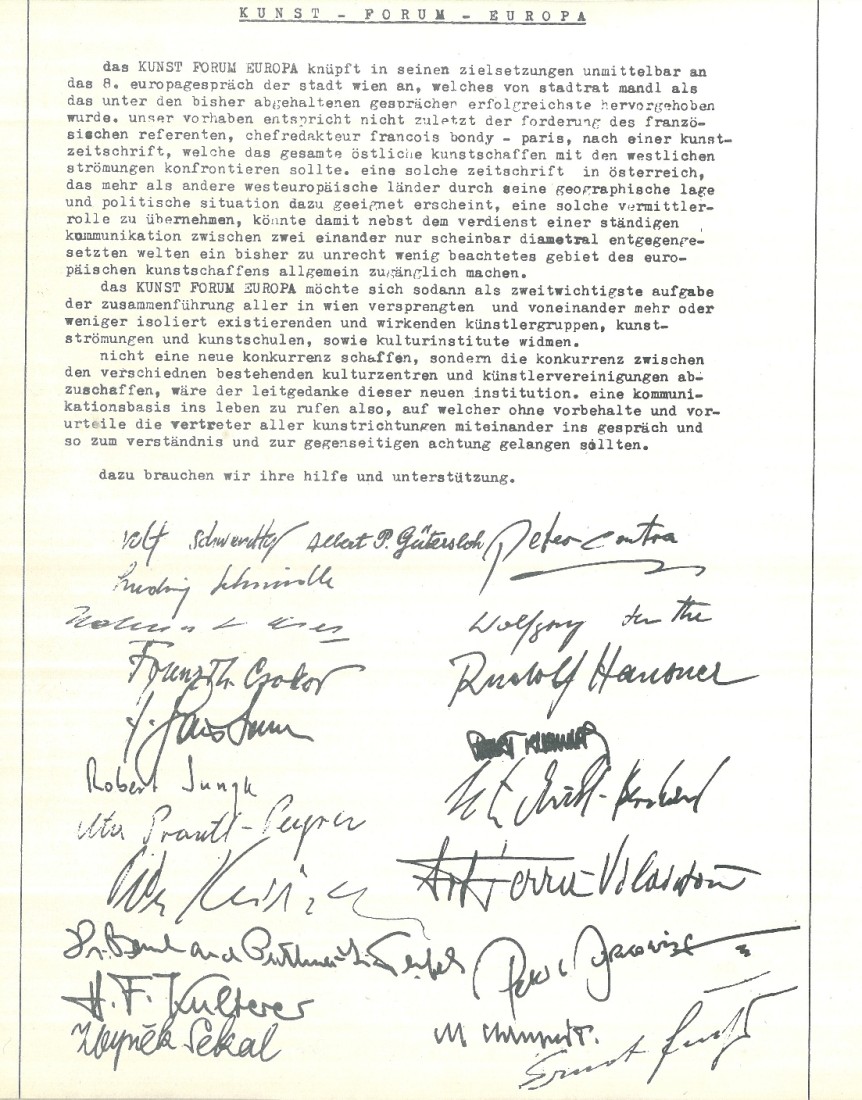 KUNST – FORUM – EUROPA
das KUNST FORUM EUROPA knüpft in seinen zielsetzungen unmittelbar an
das 8. europagespräch der stadt wien an, welches von stadtrat mandl als
das unter den bisher abgehaltenen gesprächen erfolgreichste hervorgehoben
wurde. unser vorhaben entspricht nicht zuletzt der forderung des franzö-
sischen referenten, chefredakteur francois bondy - paris, nach einer kunst-
zeitschrift, welche das gesamte östliche kunstschaffen mit den westlichen
strömungen konfrontieren sollte. eine solche zeitschrift in österreich,
das mehr als andere westeuropäische länder durch seine geographische lage
und politische situation dazu geeignet erscheint, eine solche vermittler-
rolle zu übernehmen, könnte damit nebst dem verdienst einer ständigen
kommunikation zwischen zwei einander nur scheinbar diametral entgegenge-
setzten welten ein bisher zu unrecht wenig beachtetes gebiet des euro-
päischen kunstschaffens allgemein zugänglich machen.
das KUNST FORUM EUROPA möchte sich sodann als zweitwichtigste aufgabe
der zusammenführung aller in wien versprengten und voneinander mehr oder
weniger isoliert existierenden und wirkenden künstlergruppen, kunst-
strömungen und kunstschulen, sowie kulturinstitute widmen.
nicht eine neue konkurrenz schaffen, sondern die konkurrenz zwischen
den verschiednen bestehenden kulturzentren und künstlervereinigungen ab-
zuschaffen, wäre der leitgedanke dieser neuen institution. eine kommuni-
kationsbasis ins leben zu rufen also, auf welcher ohne vorbehalte und vor-
urteile die vertreter aller kunstrichtungen miteinander ins gespräch und
so zum verständnis und zur gegenseitigen achtung gelangen sollten.
dazu brauchen wir ihre hilfe und unterstützung.
Rolf Schwendter Albert P. Gütersloh Peter Contra
Wolfgang
Franz Th. Csokor Rudolf Hausner
Robert Jungk
Uta Prantl-Peyrer
H. F. Kulterer
Zbyněk Sekal
Ernst Fuchs